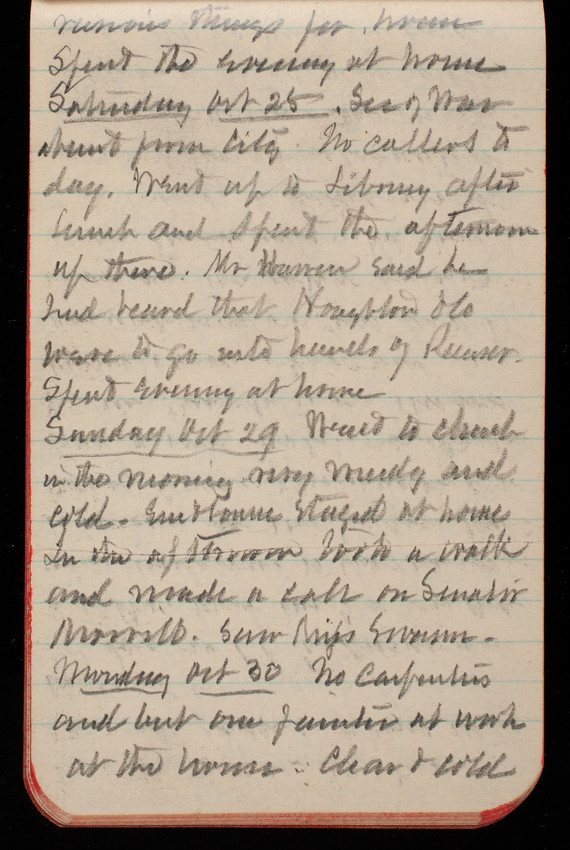 various things for house
Spent the evening at home
Saturday Oct 28. Secy of War
absent from city. No callers to
day. Went up to Library after
lunch and spent the afternoon
up there. Mr Warren said he
had heard that Houghton &Co
were to go into hands of Receiver.
Spent evening at home
Sunday Oct 29 Went to church
in the morning very muddy and
cold. stayed at home
In the afternoon took a walk
and made a call on Senator
Morrill. Saw Miss Swann.
Monday Oct 30 No carpenters
and but one painter at work
at the house. Clear & cold